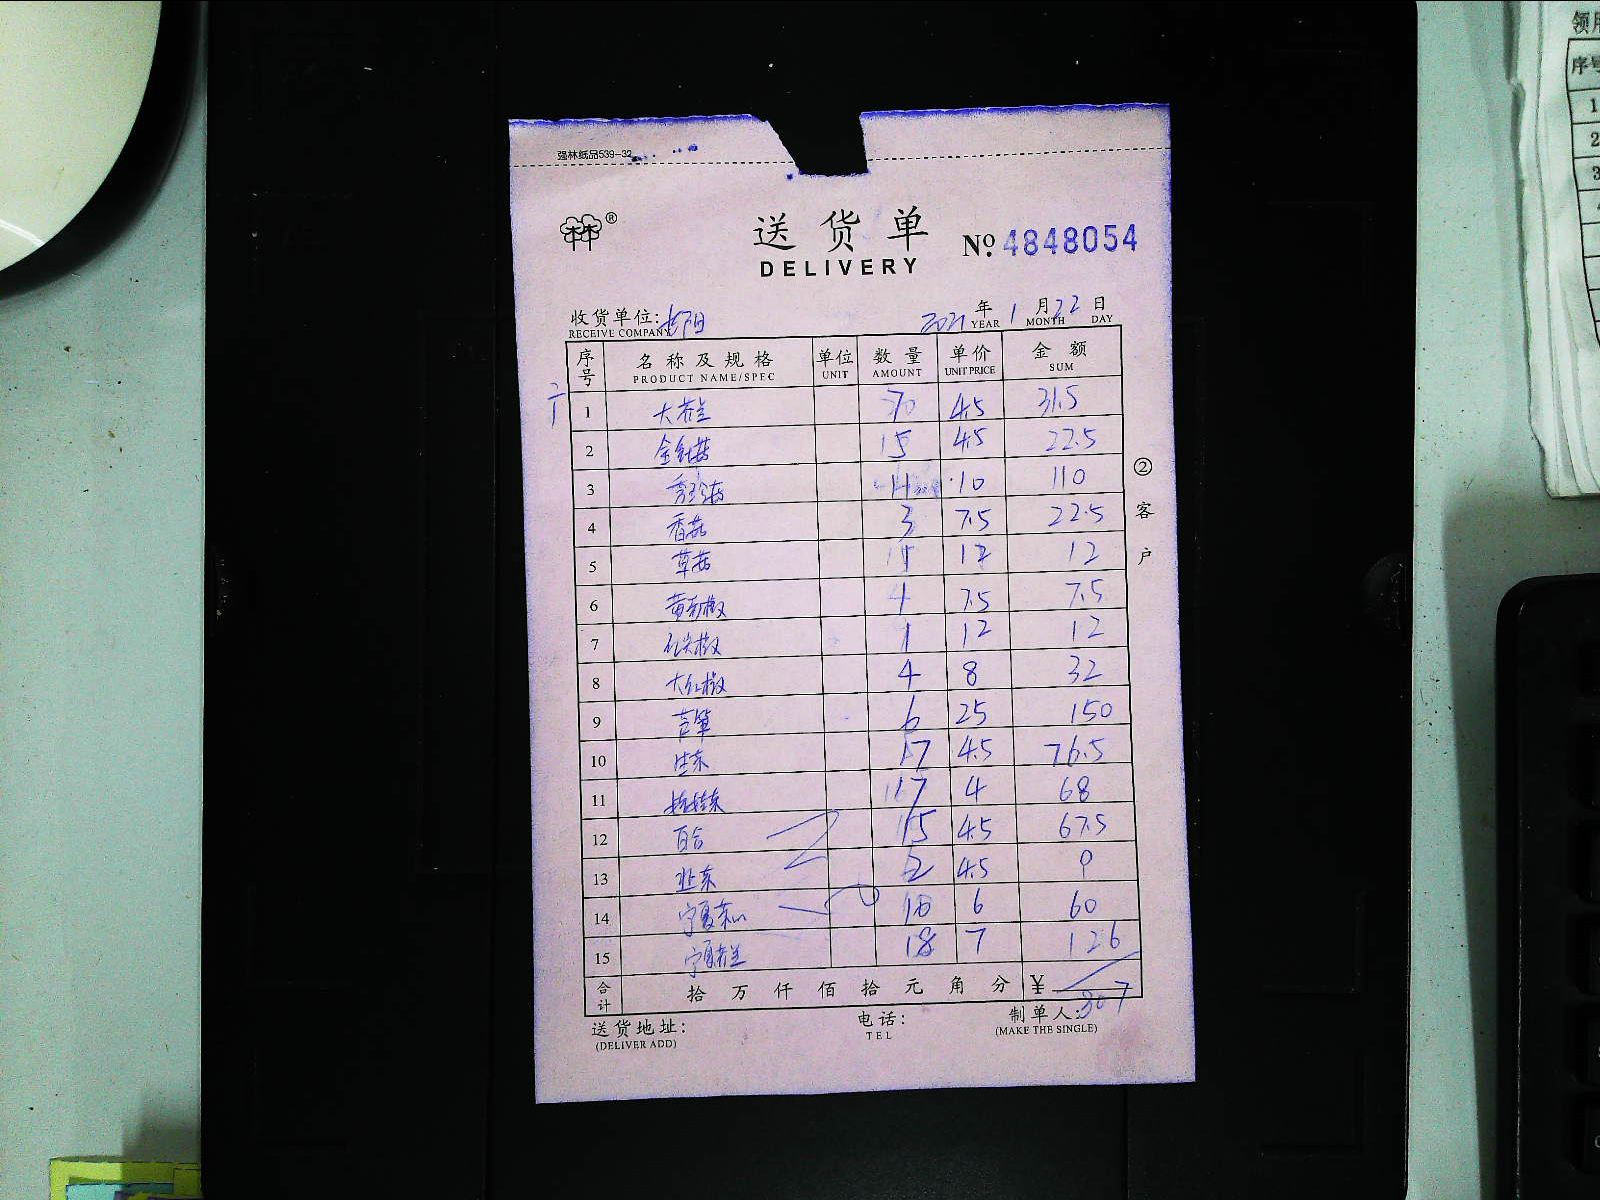 强林纸品539-32
领用
序号
1
2
3
送货单
DELIVERY
№ 4848054
收货单位:
RECEIVE COMPANY
2021 年 1 月 22 日
YEAR MONTH DAY
序号 名称及规格 单位 数量 单价 金额
PRODUCT NAME/SPEC UNIT AMOUNT UNIT PRICE SUM
1 大芥兰 7 4.5 31.5
2 金针菇 15 4.5 22.5
3 秀珍菇 11 10 110
4 香菇 3 7.5 22.5
5 草菇 1 12 12
6 黄彩椒 7.5 7.5
7 红尖椒 1 12 12
8 大红椒 4 8 32
9 芦笋 6 25 150
10 生菜 17 4.5 76.5
11 17 4 68
12 百合 15 4.5 67.5
13 2 4.5 9
14 宁夏菜心 10 6 60
15 宁夏芥兰 18 7 126
合计 拾万仟佰拾元角分 ¥ 807
②客户
送货地址:
(DELIVER ADD)
电话:
TEL
制单人:
(MAKE THE SINGLE)